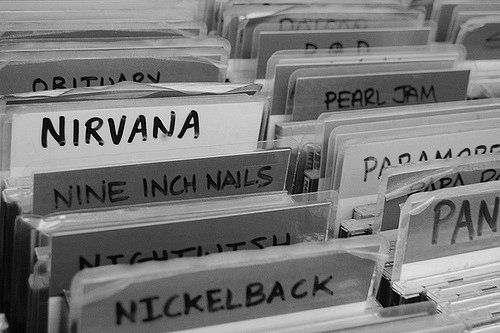 OBITUARY
NIRVANA
NINE INCH NAILS
NIGHTWISH
NICKELBACK
P.O.D.
PEARL JAM
PARAMORE
PAPA
PAN